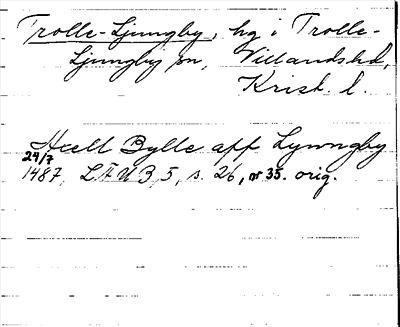 Trolle-Ljungby, hg i Trolle-
Ljungby sn, Villands hd,
Krist. l.
Axell Bylle aff Lywngby
24/7
1487, LÄUB, 5, s. 26, nr 35. orig.